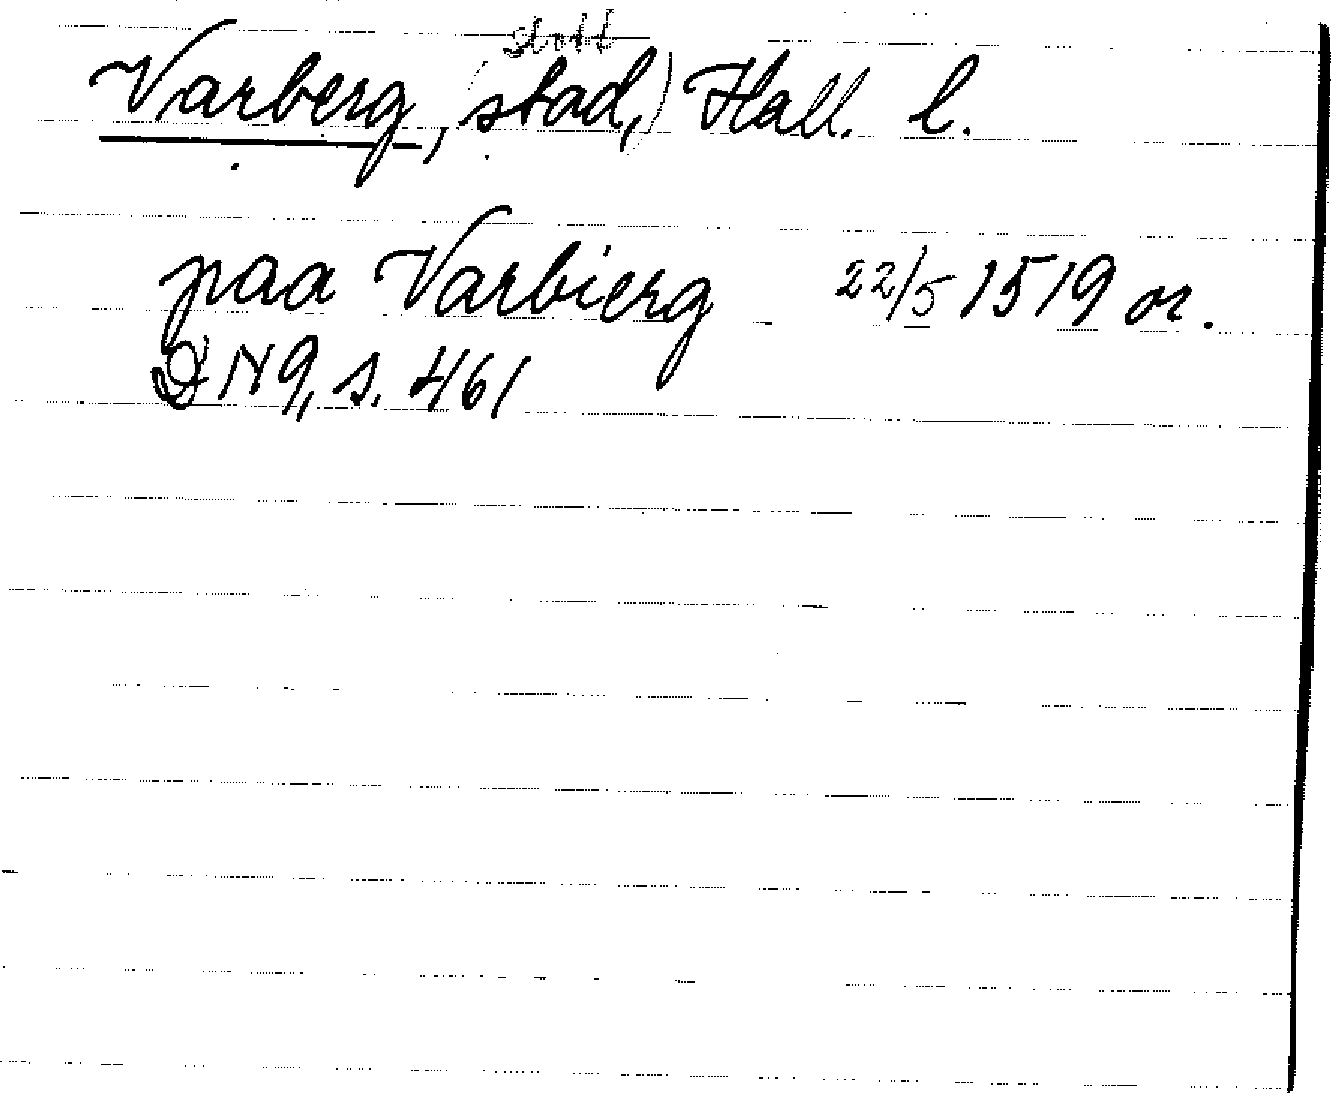 slott
Varberg, (stad,) Hall. l.
paa Varbierg 22/5 1519 or.
DN 9, s. 461